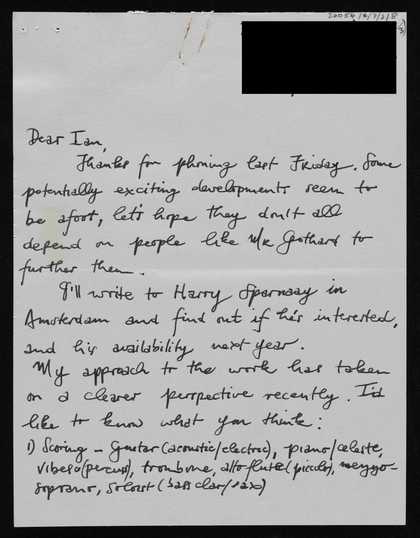 20054/4/7/2/8
Dear Ian,
Thanks for phoning last Friday. Some
potentially exciting developments seem to
be afoot, let's hope they don't all
depend on people like Mr Gothard to
further them.
I'll write to Harry Sparnaay in
Amsterdam and find out if he's interested,
and his availability next year.
My approach to the work has taken
on a clearer perspective recently. I'd
like to know what you think:
1) Scoring – Guitar (acoustic/electric), piano/celeste,
vibes (percus), trombone, alto flute (piccolo), mezzo-
soprano, soloist (bass clar/sax)